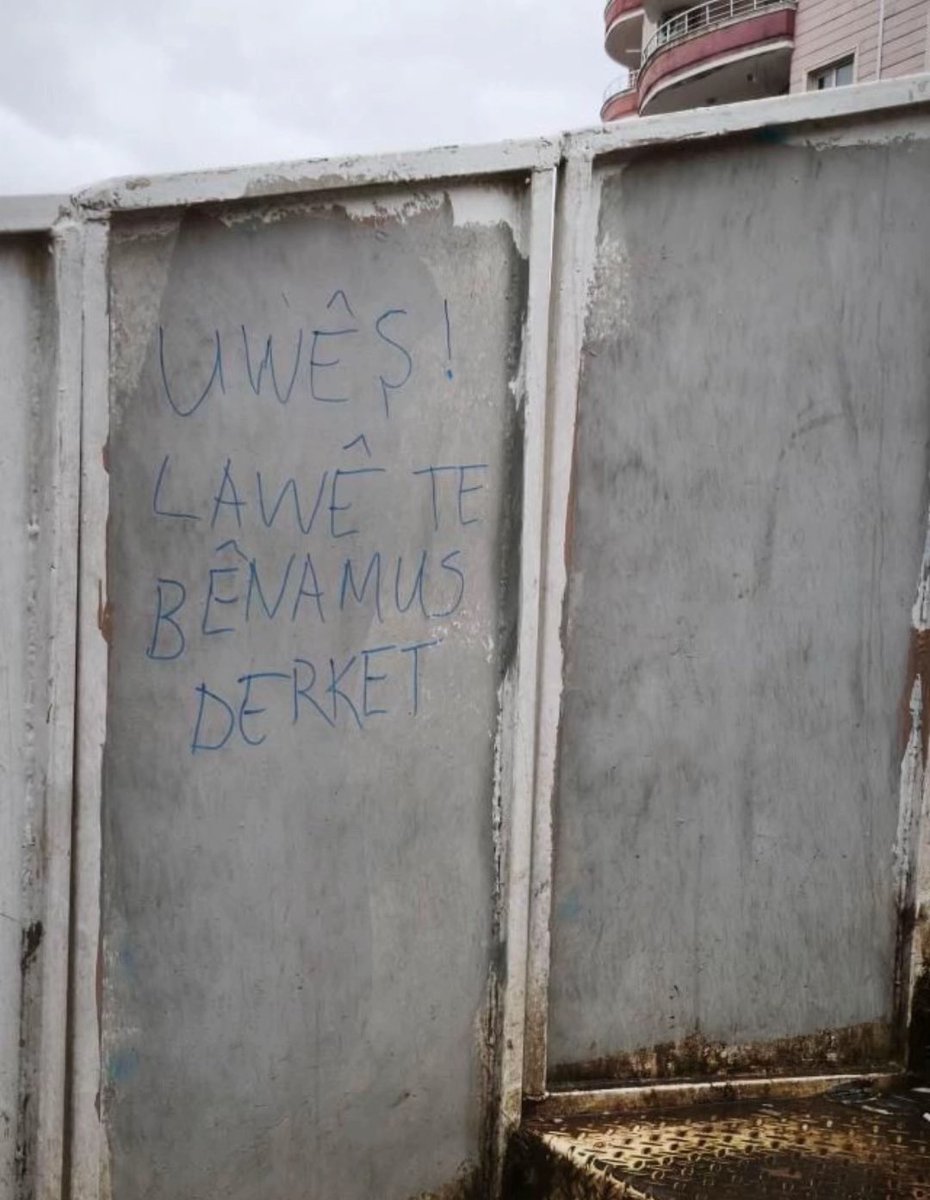 UWÊŞ!
LAWÊ TE
BÊNAMUS
DERKET